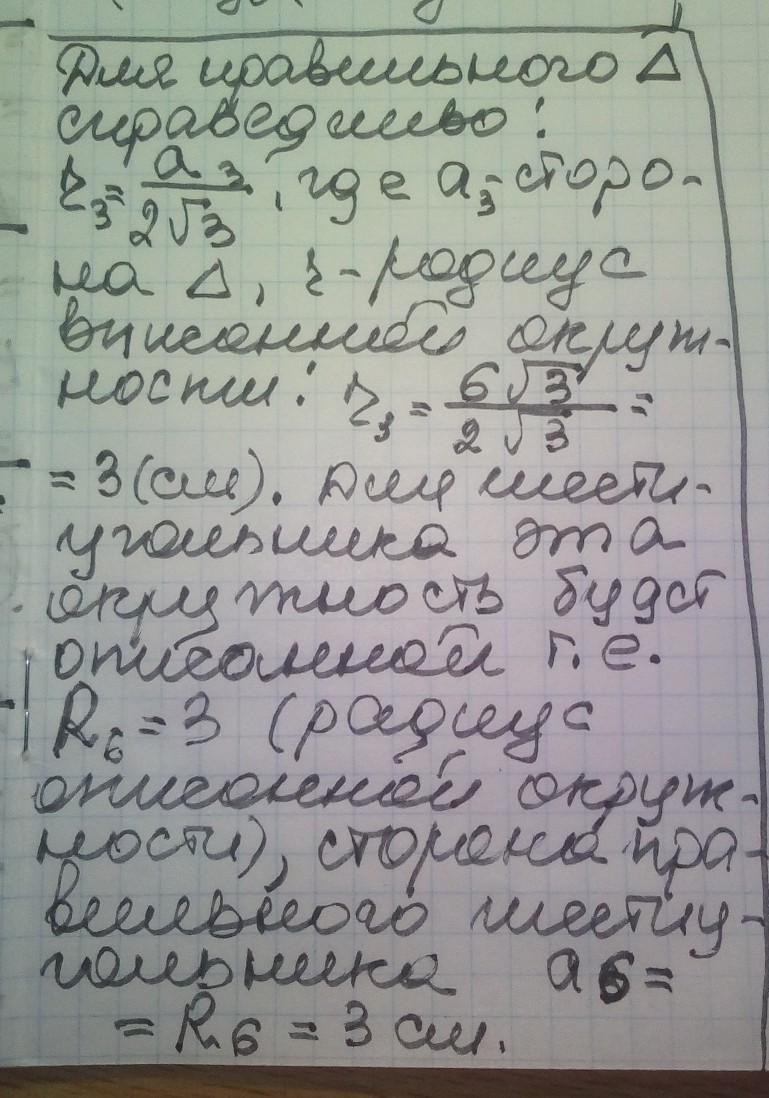 Для правильного Δ
справедливо:
r₃ = a₃/2√3, где a₃-сторо-
на Δ, r-радиус
вписанной окруж-
ности: r₃ = 6√3/2√3 =
= 3 (см). Для шести-
угольника эта
окружность будет
описанной т.е.
R₆ = 3 (радиус
описанной окруж-
ности), сторона пра-
вильного шестиу-
гольника a₆ =
= R₆ = 3 см.